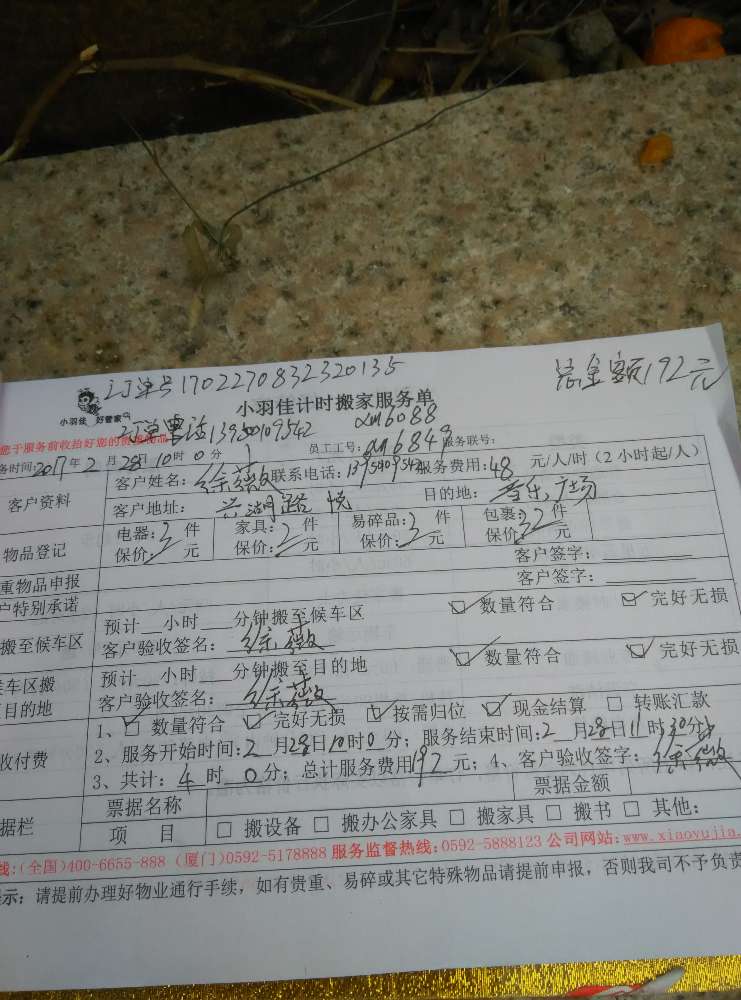 订单号1702270832320135
总金额192元
小羽佳 好管家
小羽佳计时搬家服务单
订单电话13950109542
xm6088
您于服务前收拾好您的贵重物品
员工工号: xm6849 服务联号:
务时间: 2017年2月28日10时0分
客户资料
客户姓名: 徐薇 联系电话: 服务费用: 48 元/人/时 (2小时起/人)
客户地址: 兴湖路 悦 目的地: 广场
物品登记
电器: 3 件 家具: 2 件 易碎品: 3 件 包裹: 32 件
保价: 元 保价: 元 保价: 元 保价: 元
重物品申报 客户签字:
户特别承诺 客户签字:
搬至候车区
预计 小时 分钟搬至候车区 ☑ 数量符合 ☑ 完好无损
客户验收签名: 徐薇
候车区搬
目的地
预计 小时 分钟搬至目的地 ☑ 数量符合 ☑ 完好无损
客户验收签名: 徐薇
收付费
1、☑ 数量符合 ☑ 完好无损 ☑ 按需归位 ☑ 现金结算 □ 转账汇款
2、服务开始时间: 2月28日10时0分; 服务结束时间: 2月28日11时30分
3、共计: 4 时 0分; 总计服务费用192元; 4、客户验收签字: 徐薇
据栏
票据名称 票据金额
项 目 □ 搬设备 □ 搬办公家具 □ 搬家具 □ 搬书 □ 其他:
线: (全国)400-6655-888 (厦门)0592-5178888 服务监督热线: 0592-5888123 公司网站: www.xiaoyujia.
示: 请提前办理好物业通行手续, 如有贵重、易碎或其它特殊物品请提前申报, 否则我司不予负责